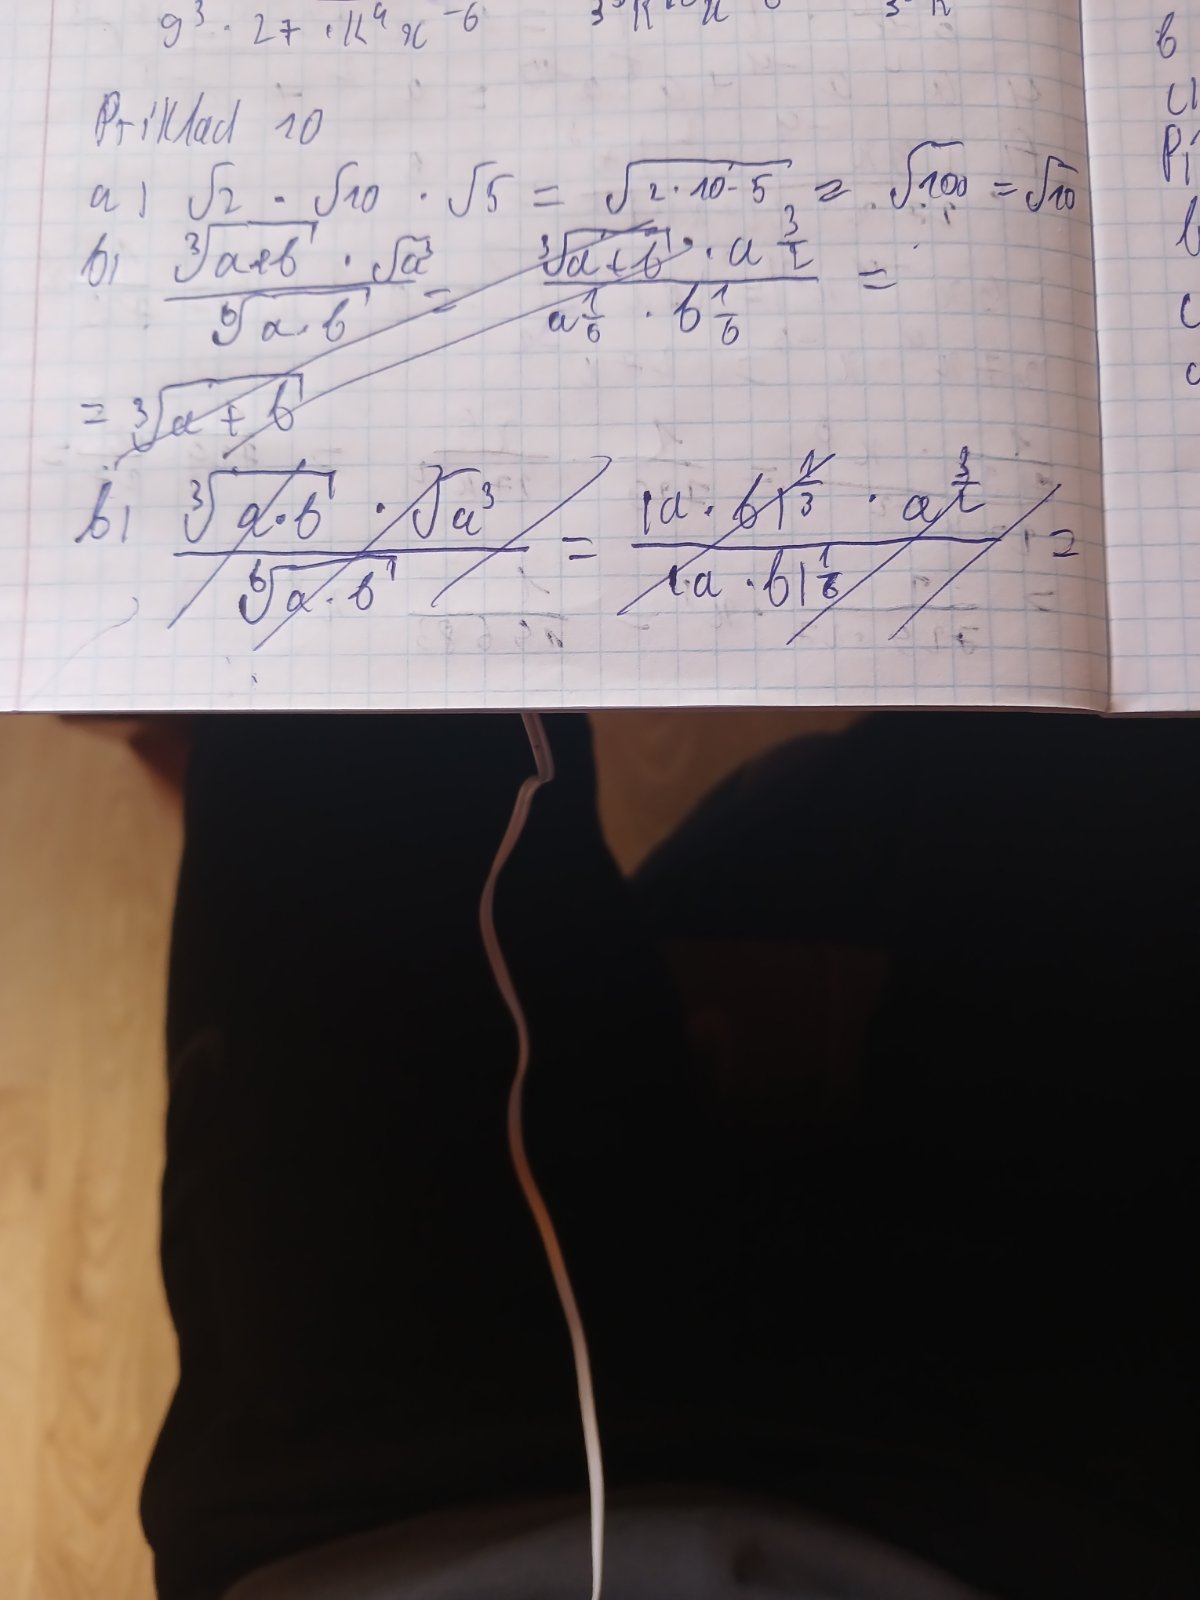 9³ · 27 · k⁴ x⁻⁶
Příklad 10
a) √2 · √10 · √5 = √(2·10·5) = √100 = √10
b) ∛(a·b) · √a³ / ⁶√(a·b) = ∛(a+b) · a^(3/2) / a^(1/6) · b^(1/6) =
= ∛(a+b)
b) ∛(a·b) · √a³ / ⁶√(a·b) = (a·b)^(1/3) · a^(3/2) / (a·b)^(1/6) =